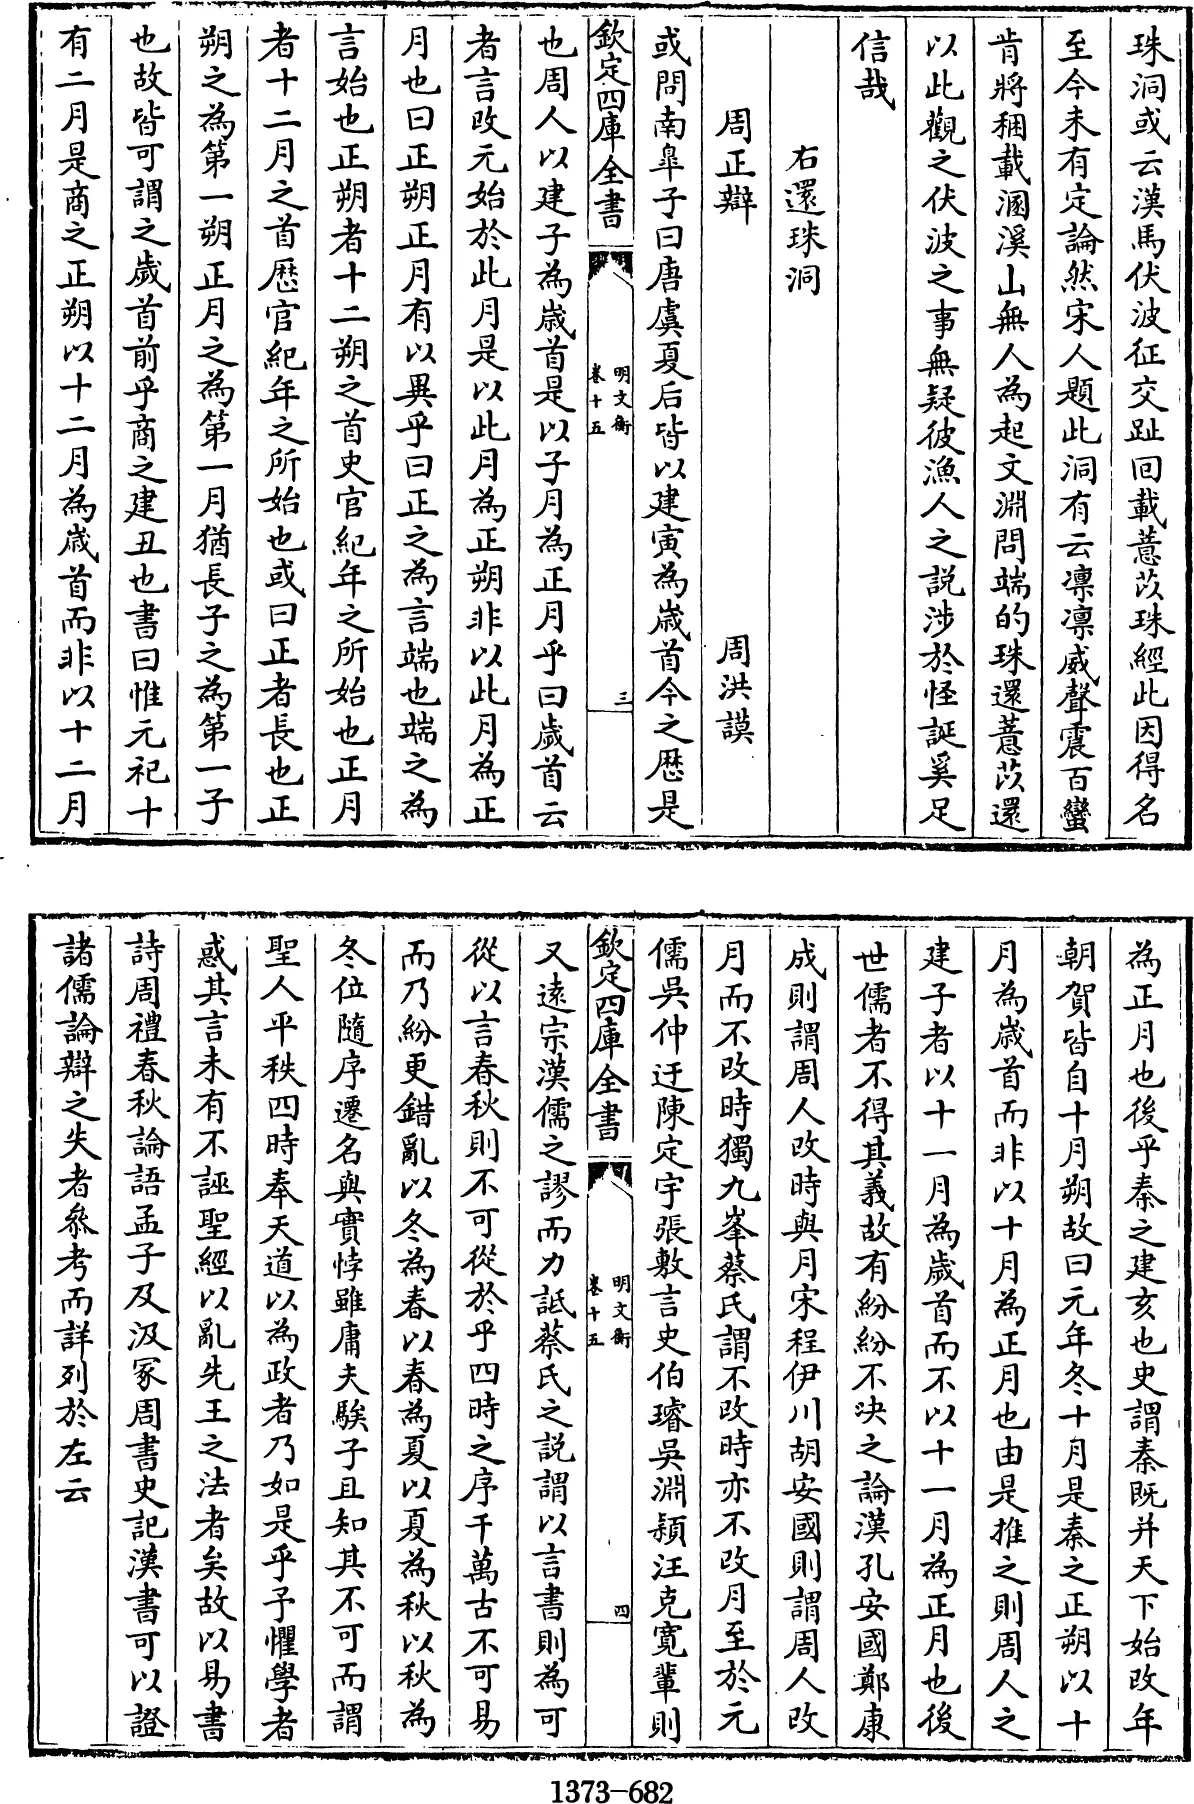 珠洞或云漢馬伏波征交趾回載薏苡珠經此因得名
至今未有定論然宋人題此洞有云凛凛威聲震百蠻
肯將稛載溷溪山無人為起文淵問端的珠還薏苡還
以此觀之伏波之事無疑彼漁人之説涉於怪誕奚足
信哉
右還珠洞
周正辯 周洪謨
或問南臯子曰唐虞夏后皆以建寅為歲首今之厯是
欽定四庫全書
明文衡
卷十五
三
也周人以建子為歲首是以子月為正月乎曰歲首云
者言改元始於此月是以此月為正朔非以此月為正
月也曰正朔正月有以異乎曰正之為言端也端之為
言始也正朔者十二朔之首史官紀年之所始也正月
者十二月之首厯官紀年之所始也或曰正者長也正
朔之為第一朔正月之為第一月猶長子之為第一子
也故皆可謂之歲首前乎商之建丑也書曰惟元祀十
有二月是商之正朔以十二月為歲首而非以十二月
為正月也後乎秦之建亥也史謂秦既并天下始改年
朝賀皆自十月朔故曰元年冬十月是秦之正朔以十
月為歲首而非以十月為正月也由是推之則周人之
建子者以十一月為歲首而不以十一月為正月也後
世儒者不得其義故有紛紛不决之論漢孔安國鄭康
成則謂周人改時與月宋程伊川胡安國則謂周人改
月而不改時獨九峯蔡氏謂不改時亦不改月至於元
儒吳仲迂陳定宇張敷言史伯璿吳淵頴汪克寬輩則
欽定四庫全書
明文衡
卷十五
四
又遠宗漢儒之謬而力詆蔡氏之説謂以言書則為可
從以言春秋則不可從於乎四時之序千萬古不可易
而乃紛更錯亂以冬為春以春為夏以夏為秋以秋為
冬位隨序遷名與實悖雖庸夫騃子且知其不可而謂
聖人平秩四時奉天道以為政者乃如是乎予懼學者
惑其言未有不誣聖經以亂先王之法者矣故以易書
詩周禮春秋論語孟子及汲冢周書史記漢書可以證
諸儒論辯之失者叅考而詳列於左云
1373-682